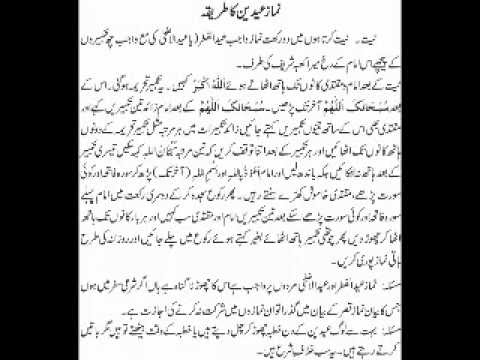 نماز عیدین کا طریقہ
نیت ۔ نیت کرتا ہوں میں دو رکعت نماز واجب عید الفطر (یا عید الاضحیٰ کی مع واجب چھ تکبیروں
کے پیچھے اس امام کے رخ میرا کعبہ شریف کی طرف۔
نیت کے بعد امام و مقتدی کانوں تک ہاتھ اٹھاتے ہوئے اَللّٰهُ اَکْبَرُ کہیں۔ یہ تکبیر تحریمہ ہو گئی۔ اس کے
بعد سُبْحَانَکَ اللّٰھُمَّ آخر تک پڑھیں۔ سُبْحَانَکَ اللّٰھُمَّ کے بعد امام زائد تین تکبیریں کہے اور
مقتدی بھی اس کے ساتھ تینوں تکبیریں کہتے جائیں زائد تکبیرات میں ہر مرتبہ مثل تکبیر تحریمہ کے دونوں
ہاتھ کانوں تک اٹھائیں اور ہر تکبیر کے بعد اتنا توقف کریں کہ تین مرتبہ سُبْحَانَ اللہ کہہ سکیں تیسری تکبیر
کے بعد ہاتھ نہ لٹکائیں بلکہ باندھ لیں اور امام اعوذ باللہ اور بسم اللہ (آخر تک) پڑھ کر سورہ فاتحہ اور کوئی
سورت پڑھے، مقتدی خاموش کھڑے سنتے رہیں۔ پھر رکوع سجدہ کر کے دوسری رکعت میں امام پہلے
سورہ فاتحہ اور کوئی سورت پڑھے اسکے بعد تین تکبیریں امام اور مقتدی سب کہیں اور ہر بار کانوں تک ہاتھ
اٹھا کر چھوڑ دیں پھر چوتھی تکبیر ہاتھ اٹھائے بغیر کہتے ہوئے رکوع میں چلے جائیں اور روزانہ کی طرح
باقی نماز پوری کریں۔
مسئلہ: نماز عید الفطر اور عید الاضحیٰ مردوں پر واجب ہے اس کا چھوڑنا گناہ ہے ہاں اگر شرعی سفر میں ہوں
جس کا بیان نماز قصر کے بیان میں گذرا تو ان نمازوں میں شرکت نہ کرنے کی اجازت ہے۔
مسئلہ: بہت سے لوگ عیدین کے دن خطبہ چھوڑ کر چل دیتے ہیں یا خطبہ کے وقت بیٹھے تو ہیں مگر باتیں
کرتے رہتے ہیں۔ یہ سب خلاف شرع ہیں۔